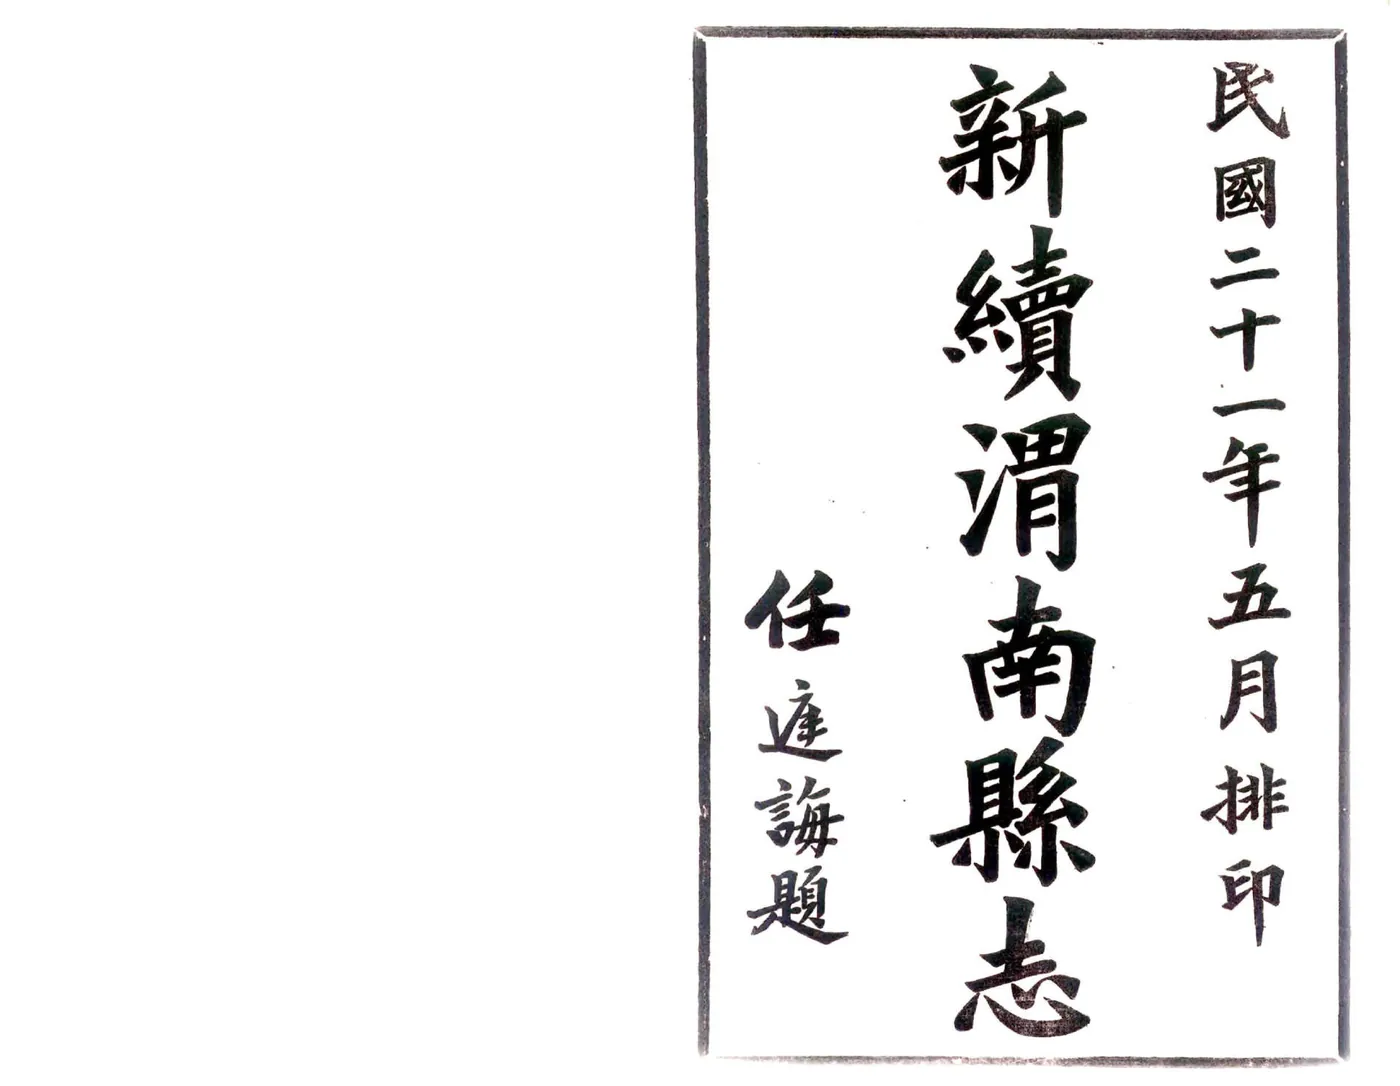 民國二十一年五月排印
新續渭南縣志
任遞誨題